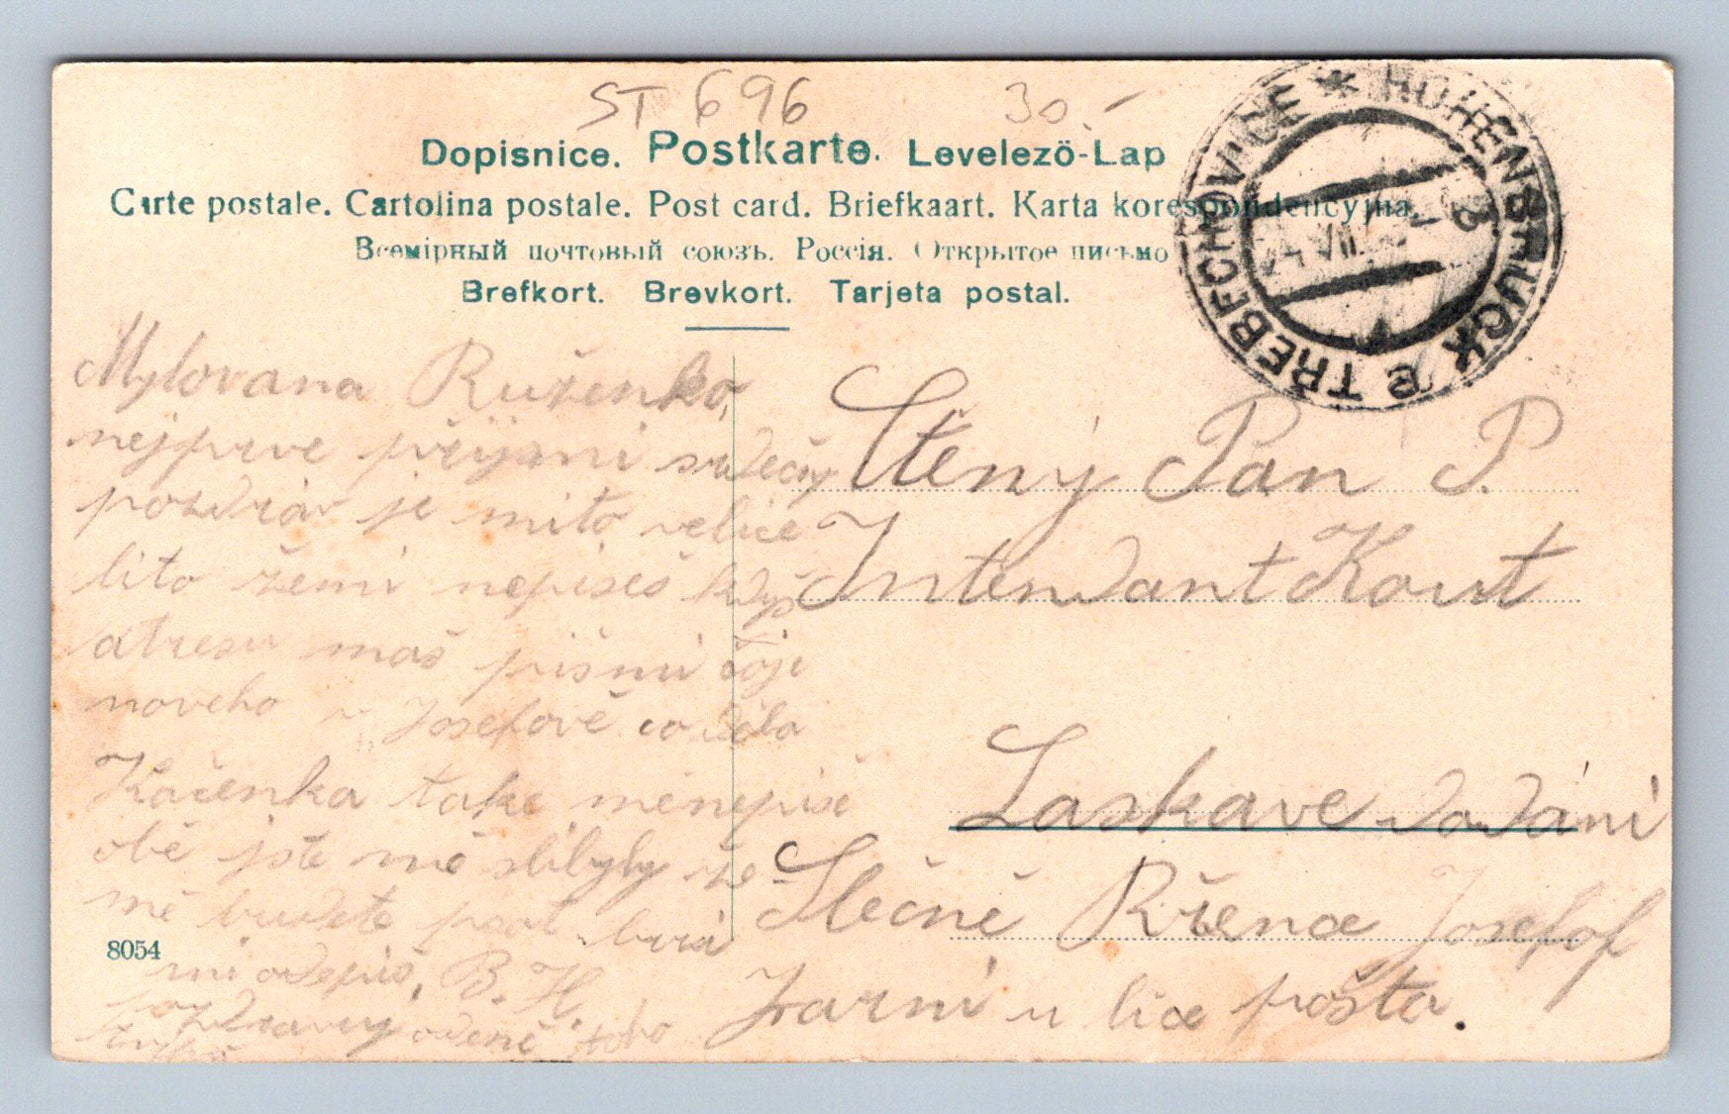 ST 696 30.-
Dopisnice. Postkarte. Levelezö-Lap
Carte postale. Cartolina postale. Post card. Briefkaart. Karta korespondencyjna.
Всемірный почтовый союзъ. Россія. Открытое письмо
Brefkort. Brevkort. Tarjeta postal.
TŘEBECHOVICE * HOHENBRUCK
VII
Mylovana Ruženko,
nejprve přijmi srdečny
pozdrav je mito velice
lito žemi nepiseš když
atresu maš pišmi
noveho v Josefově co děla
Kačenka take měnepiše
obě jste mě slibyly že
mě budete psat
mi odepiš, B. H.
pozdravuj
Ctěný Pan P.
Intendant Kout
Laskave dodáni
Slečně Josefof
Jarni u lice pošta.
8054